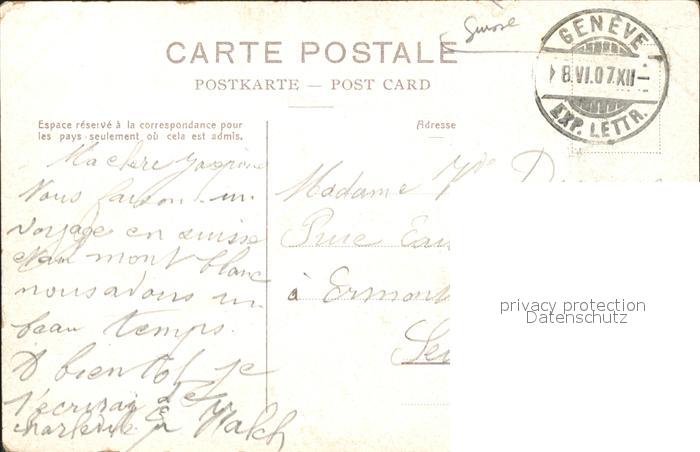 Suisse
CARTE POSTALE
POSTKARTE — POST CARD
GENÈVE
8.VI.07.XII
EXP. LETTR.
Espace réservé à la correspondance pour
les pays seulement où cela est admis.
Adresse
Ma chère
Nous faisons un
voyage en suisse
et au mont blanc
nous avons un
beau temps.
A bientot je
t'ecrirai de
Walch
Madame Vve
Rue Eau
à Ermont
privacy protection
Datenschutz